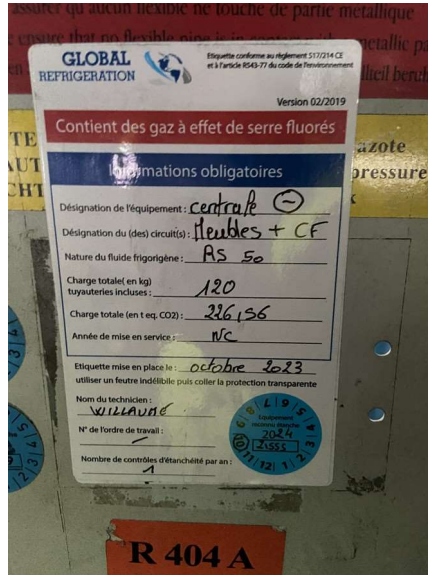 assurer qu aucun flexible ne touche de partie metallique
ensure that no flexible pipe is in metallic
GLOBAL
REFRIGERATION
Etiquette conforme au règlement 517/214 CE
et à l'article R543-77 du code de l'environnement
Version 02/2019
Contient des gaz à effet de serre fluorés
Informations obligatoires
azote
pressure
Désignation de l'équipement : centrale -
Désignation du (des) circuit(s) : Meubles + CF
Nature du fluide frigorigène : RS 50
Charge totale( en kg)
tuyauteries incluses : 120
Charge totale (en t eq. CO2) : 226,56
Année de mise en service : NC
Etiquette mise en place le : octobre 2023
utiliser un feutre indélibile puis coller la protection transparente
Nom du technicien :
WILLAUME
N° de l'ordre de travail :
Nombre de contrôles d'étanchéité par an :
1
Equipement
reconnu étanche
2024
R 404 A